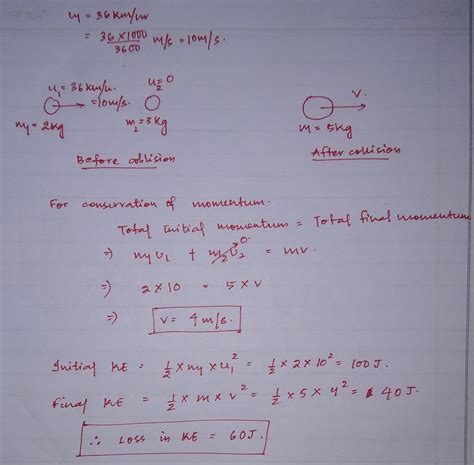 u₁ = 36 km/hr
= 36 × 1000 / 3600 m/s = 10 m/s.
u₁ = 36 km/hr. u₂ = 0
= 10 m/s. v.
m₁ = 2kg m₂ = 3kg m = 5kg
Before collision After collision
For conservation of momentum.
Total Initial momentum = Total final momentum
⇒ m₁u₁ + m₂u₂ 0 = mv.
⇒ 2 × 10 = 5 × v
⇒ v = 4 m/s.
Initial KE = 1/2 × m₁ × u₁² = 1/2 × 2 × 10² = 100 J.
Final KE = 1/2 × m × v² = 1/2 × 5 × 4² = 40 J.
∴ Loss in KE = 60 J.